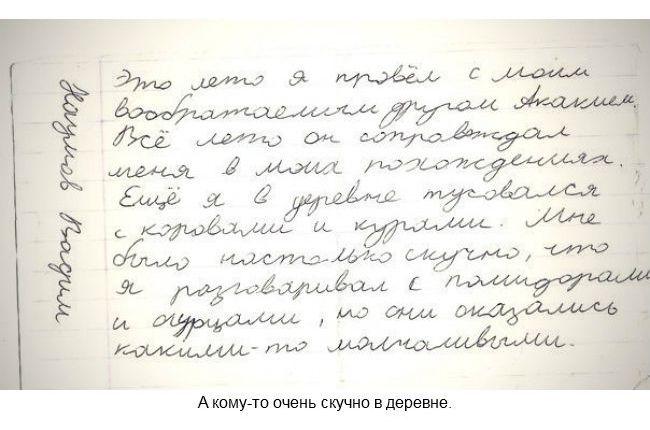 Наумов Вадим
Это лето я провёл с моим
воображаемым другом Акакием.
Всё лето он сопровждал
меня в моих похождениях.
Ещё я в деревне тусовался
с коровами и курами. Мне
было настолько скучно, что
я разговаривал с помидорами
и огурцами, но они оказались
какими-то молчаливыми.
А кому-то очень скучно в деревне.